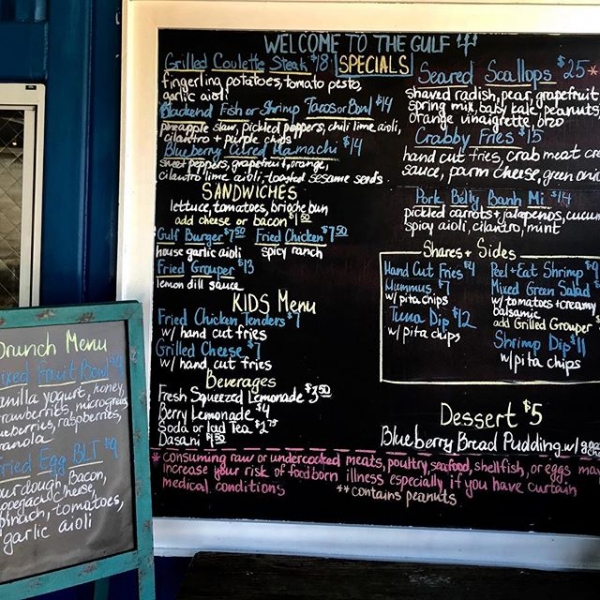 WELCOME TO THE GULF
SPECIALS
Grilled Coulette Steak $18
fingerling potatoes, tomato pesto,
garlic aioli
Blackend Fish or Shrimp Tacos or Bowl $14
pineapple slaw, pickled peppers, chili lime aioli,
cilantro + purple chips
Blueberry Cured Hamachi $14
sweet peppers, grapefruit, orange,
cilantro lime aioli, toasted sesame seeds
SANDWICHES
lettuce, tomatoes, brioche bun
add cheese or bacon $1.50
Gulf Burger $7.50 Fried Chicken $7.50
house garlic aioli spicy ranch
Fried Grouper $13
lemon dill sauce
KIDS Menu
Fried Chicken Tenders $7
w/ hand cut fries
Grilled Cheese $7
w/ hand cut fries
Beverages
Fresh Squeezed Lemonade $3.50
Berry Lemonade $4
Soda or Iced Tea $2.75
Dasani $1.50
Seared Scallops $25*
shaved radish, pear, grapefruit
spring mix, baby kale, peanuts,
orange vinaigrette, orzo
Crabby Fries $15
hand cut fries, crab meat
sauce, parm cheese, green
Pork Belly Banh Mi $14
pickled carrots + jalapenos, cucum
spicy aioli, cilantro, mint
Shares + Sides
Hand Cut Fries $4
Hummus $7
w/ pita chips
Tuna Dip $12
w/ pita chips
Peel + Eat Shrimp $9
Mixed Green Salad
w/ tomatoes + creamy
balsamic
add Grilled Grouper $
Shrimp Dip $11
w/ pita chips
Dessert $5
Blueberry Bread Pudding w/
* consuming raw or undercooked meats, poultry, seafood, shellfish, or eggs may
increase your risk of foodborn illness especially if you have curtain
medical conditions
**contains peanuts
Brunch Menu
ixed Fruit Bowl $9
anilla yogurt, honey,
trawberries, microgreens
ueberries, raspberries,
ranola
ried Egg BLT $9
our dough, bacon,
cheese,
pinach, tomatoes,
garlic aioli